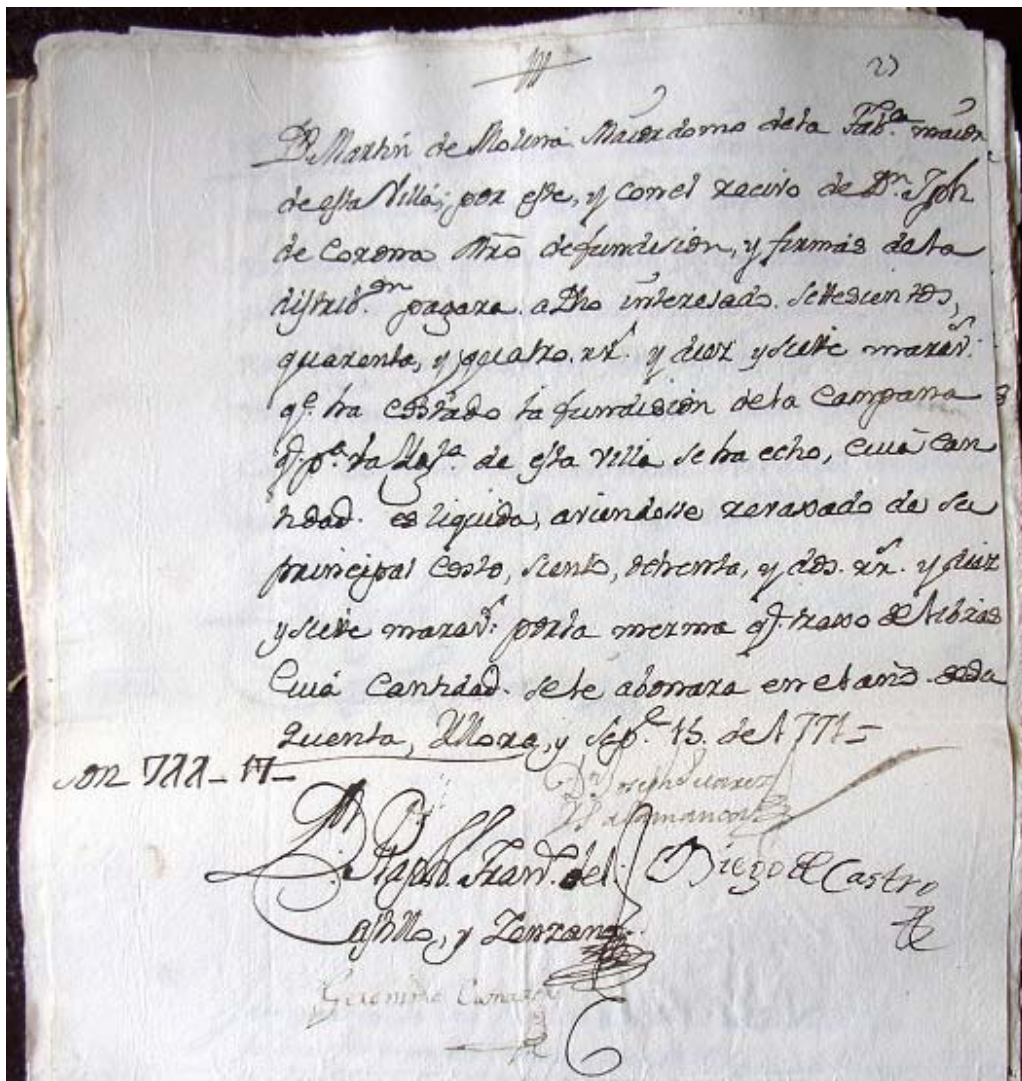 27
Dn. Martin de Molina Maiordomo dela Fabª. maior
de esta Villa; por este, y con el recivo de Dn. Jph
de Corona Mro de fundision, y firmas de la
distribon. pagara a Dho interesado settesientos,
quarenta, y quatro rs. y diez y siete maravs.
qe. ha costado la fundision dela Campana
q. pª. la Yglª. de esta villa se ha echo, cuia can
tidad es liquida, aviendose revaxado de su
principal costo, siento, ochenta, y dos rs. y diez
y siete maravs. por la merma qe. traxo de libras
Cuia Cantidad se le abonara en el año
quenta, Yllora, y Sepe. 15. de 1771=
son 744-17-
Dn Joseph Suarez
Salamanca
Dn. Fran. del Diego de Castro
Castillo, y
Geronimo